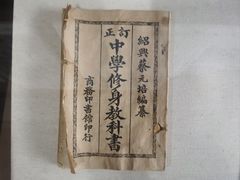 訂正
中學修身教科書
紹興蔡元培編纂
商務印書館印行